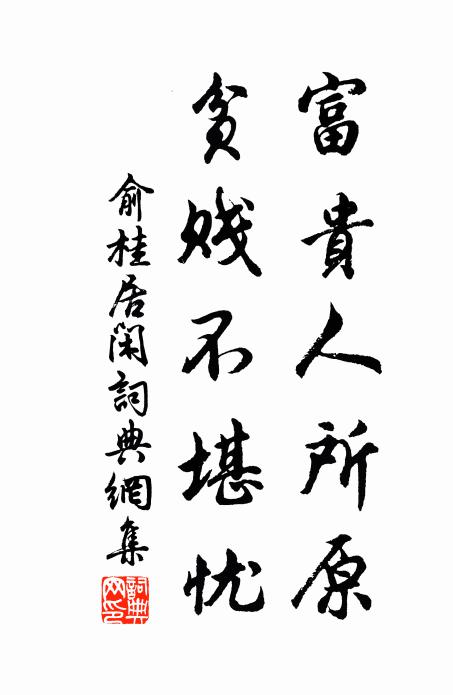 富貴人所原
貧賤不堪忧
俞桂居閑詞典網集
詞典網印